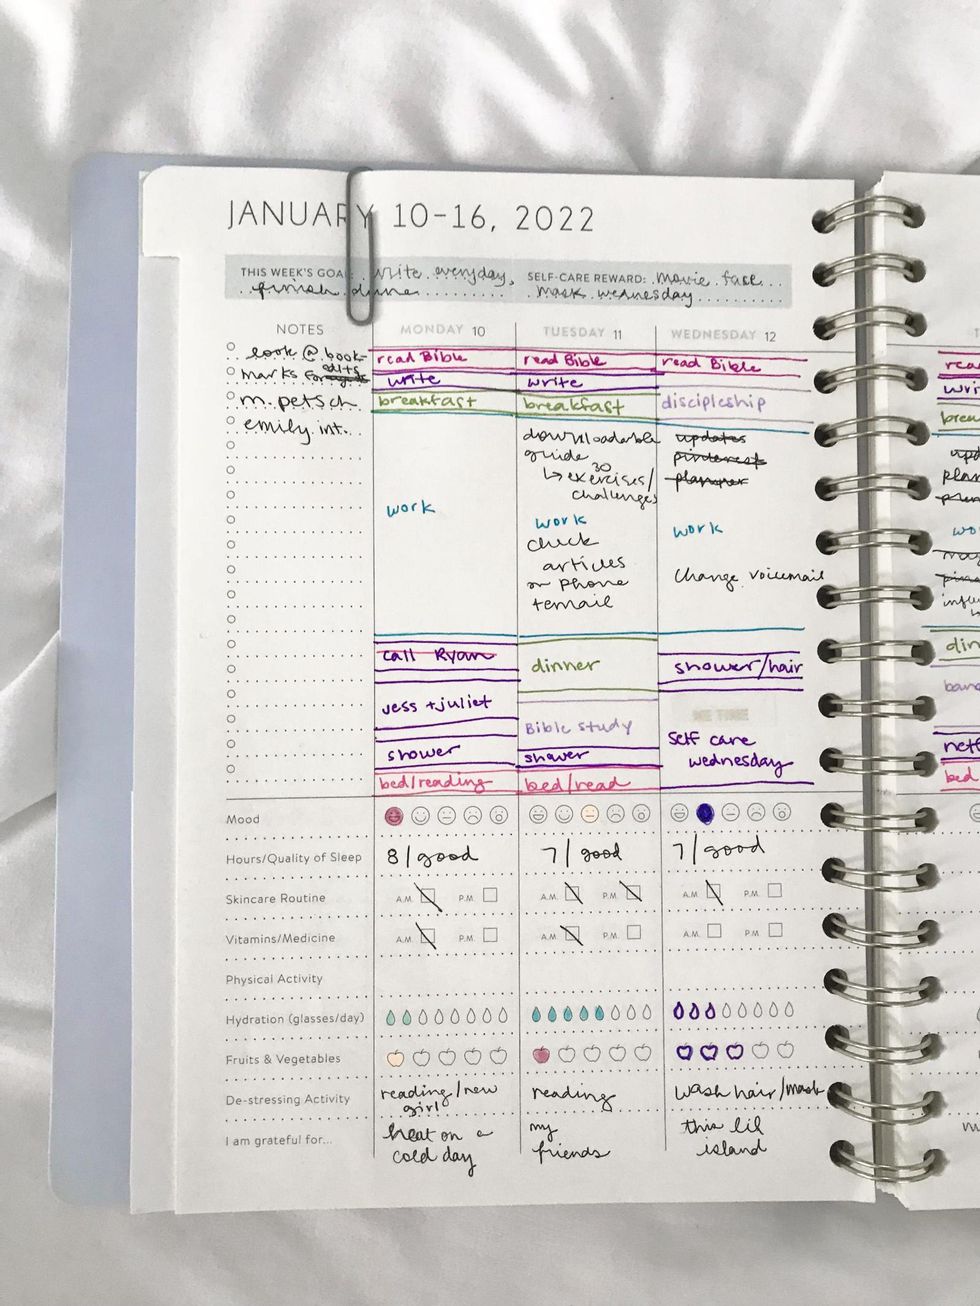 JANUARY 10-16, 2022
THIS WEEK'S GOAL: write everyday,
finish dinne
SELF-CARE REWARD: movie face
mask wednesday
NOTES
look @ book-
marks for edits
m. petsch
emily int.
MONDAY 10
read Bible
write
breakfast
work
call Ryan
jess + juliet
shower
bed/reading
TUESDAY 11
read Bible
write
breakfast
downloadable
guide
↳ 30 exercises/
challenges
work
check
articles
on phone
+email
dinner
Bible study
shower
bed/read
WEDNESDAY 12
read Bible
discipleship
updates
pinterest
planner
work
Change voicemail
shower/hair
ME TIME
self care
wednesday
Mood
Hours/Quality of Sleep 8/good 7/good 7/good
Skincare Routine A.M. P.M. A.M. P.M. A.M. P.M.
Vitamins/Medicine A.M. P.M. A.M. P.M. A.M. P.M.
Physical Activity
Hydration (glasses/day)
Fruits & Vegetables
De-stressing Activity reading/new girl reading wash hair/mask
I am grateful for... heat on a cold day my friends this lil island